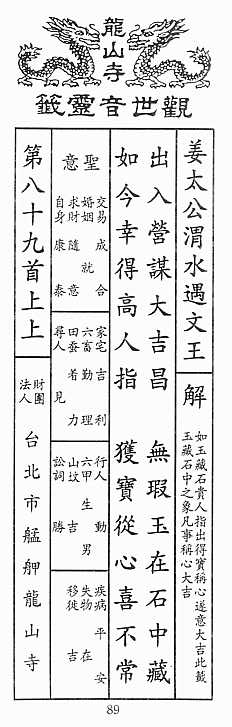 龍山寺
觀世音靈籤
姜太公渭水遇文王
解
如玉藏石貴人指出得寶稱心遂意大吉此籤
玉藏石中之象凡事稱心大吉
出入營謀大吉昌 無瑕玉在石中藏
如今幸得高人指 獲寶從心喜不常
聖意
交易 成 合
婚姻 就
求財 隨意
自身 康泰
家宅 吉利
六畜 勤理
田蠶 者力
尋人 見
行人 動
六甲 生男
山墳 吉
訟詞 勝
疾病 平安
失物 在
移徙 吉
第八十九首上上
財團
法人
台北市艋舺龍山寺
89